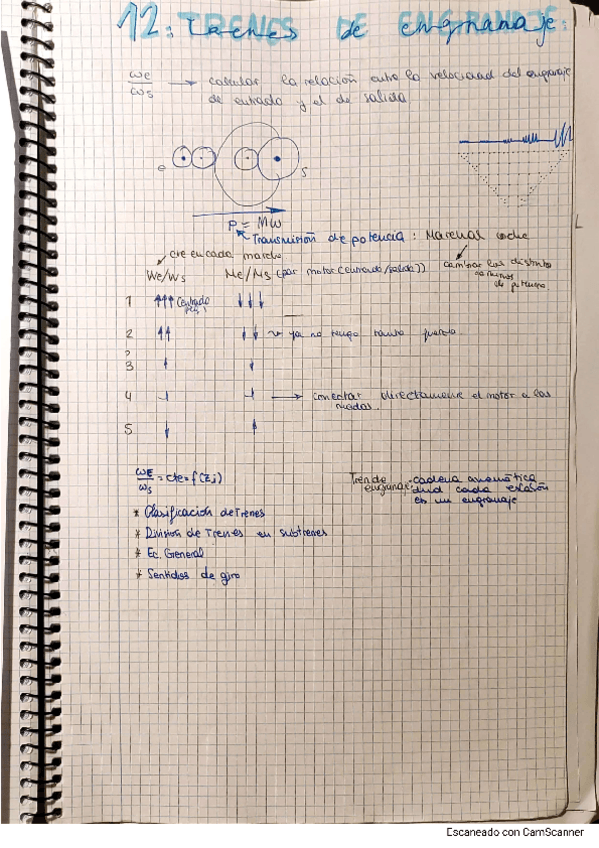 12: TRENES DE engranaje:
ωe/ωs → calcular la relación entre la velocidad del engranaje
de entrada y el de salida
e
s
P = Mω
Transmisión de potencia: Marchas coche
cte en cada marcha
We/Ws Me/Ms (par motor (entrada/salida))
cambiar los distintos
caminos
de potencia
1 ↑↑↑ ↓↓↓
2 ↑↑ ↓↓ ya no tengo tanta fuerza.
3 ↑ ↓
4 → conectar directamente el motor a las
ruedas.
5 ↓ ↑
ωE/ωs = cte = f(Zi)
Tren de
engranaje: cadena cinemática
dnd cada eslabón
es un engranaje
* Clasificación de Trenes
* División de Trenes en subtrenes
* Ec. General
* Sentidos de giro
Escaneado con CamScanner